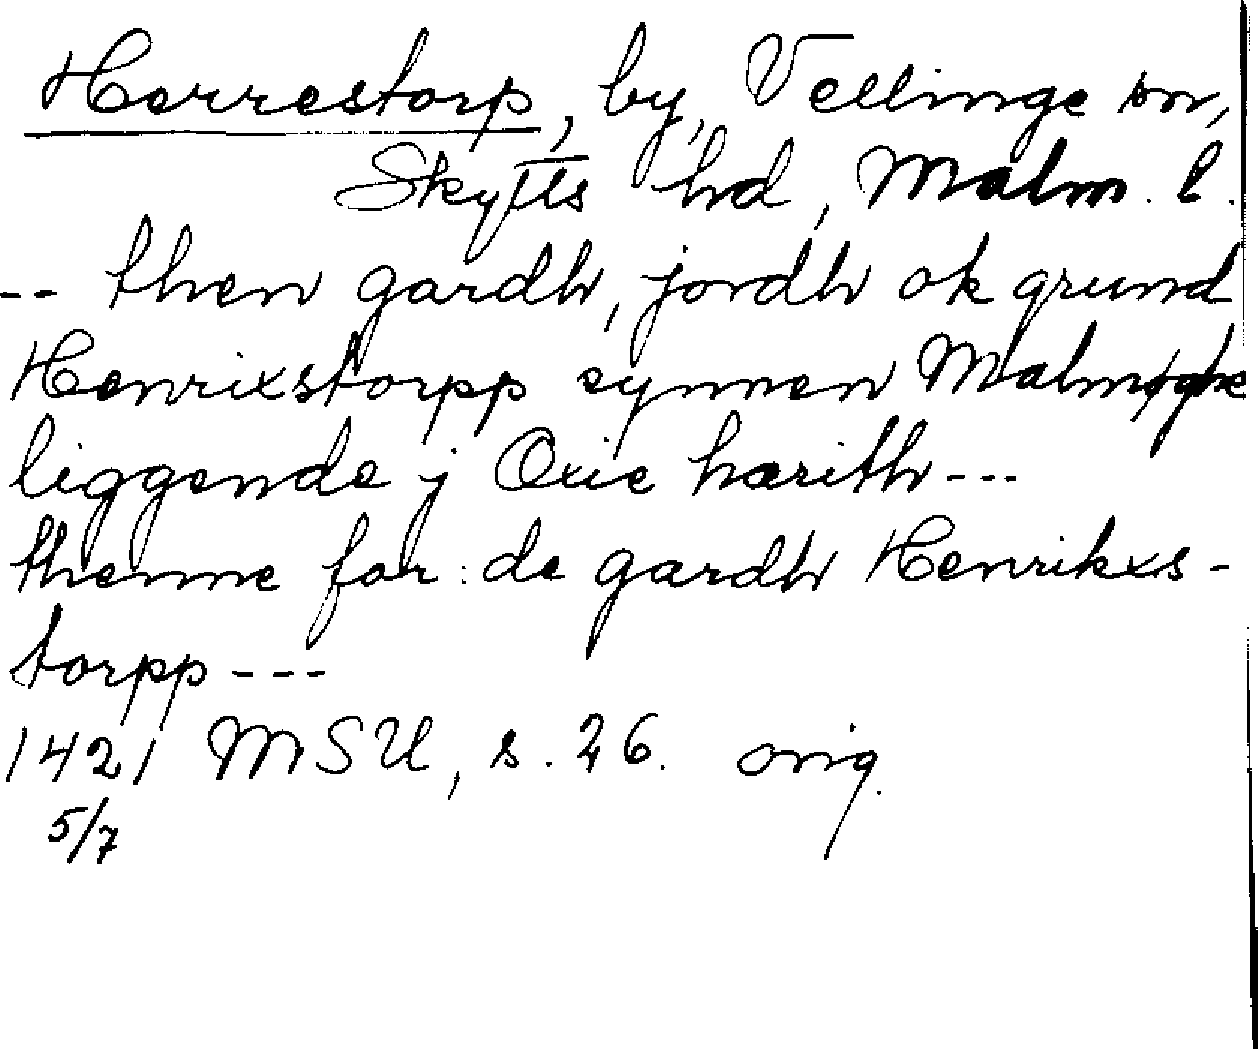 Herrestorp, by, Vellinge sn,
Skytts hd, Malm. l.
-- then gardh, jordh ok grund
Henrixstorpp synnen Malmøghe
liggende j Oxie hærith ---
thenne for: de gardh Henrikxs-
torpp ---
1421 MSU, s. 26. orig.
5/7